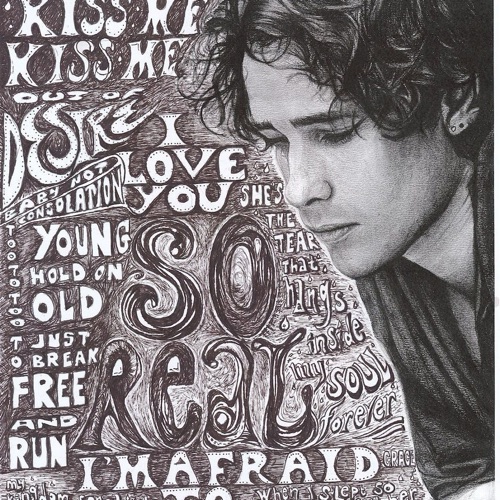 KISS ME
KISS ME
OUT OF
DESIRE
BABY NOT
CONSOLATION
I
LOVE
YOU
SHE'S
THE
TEAR
THAT
HANGS
inside
my
SOUL
forever
TOO
YOUNG
TO
HOLD ON
TOO
OLD
TO
JUST
BREAK
FREE
AND
RUN
SO
REAL
I'M AFRAID
GRACE
my
kingdom
WHEN I SLEPT SO
TO